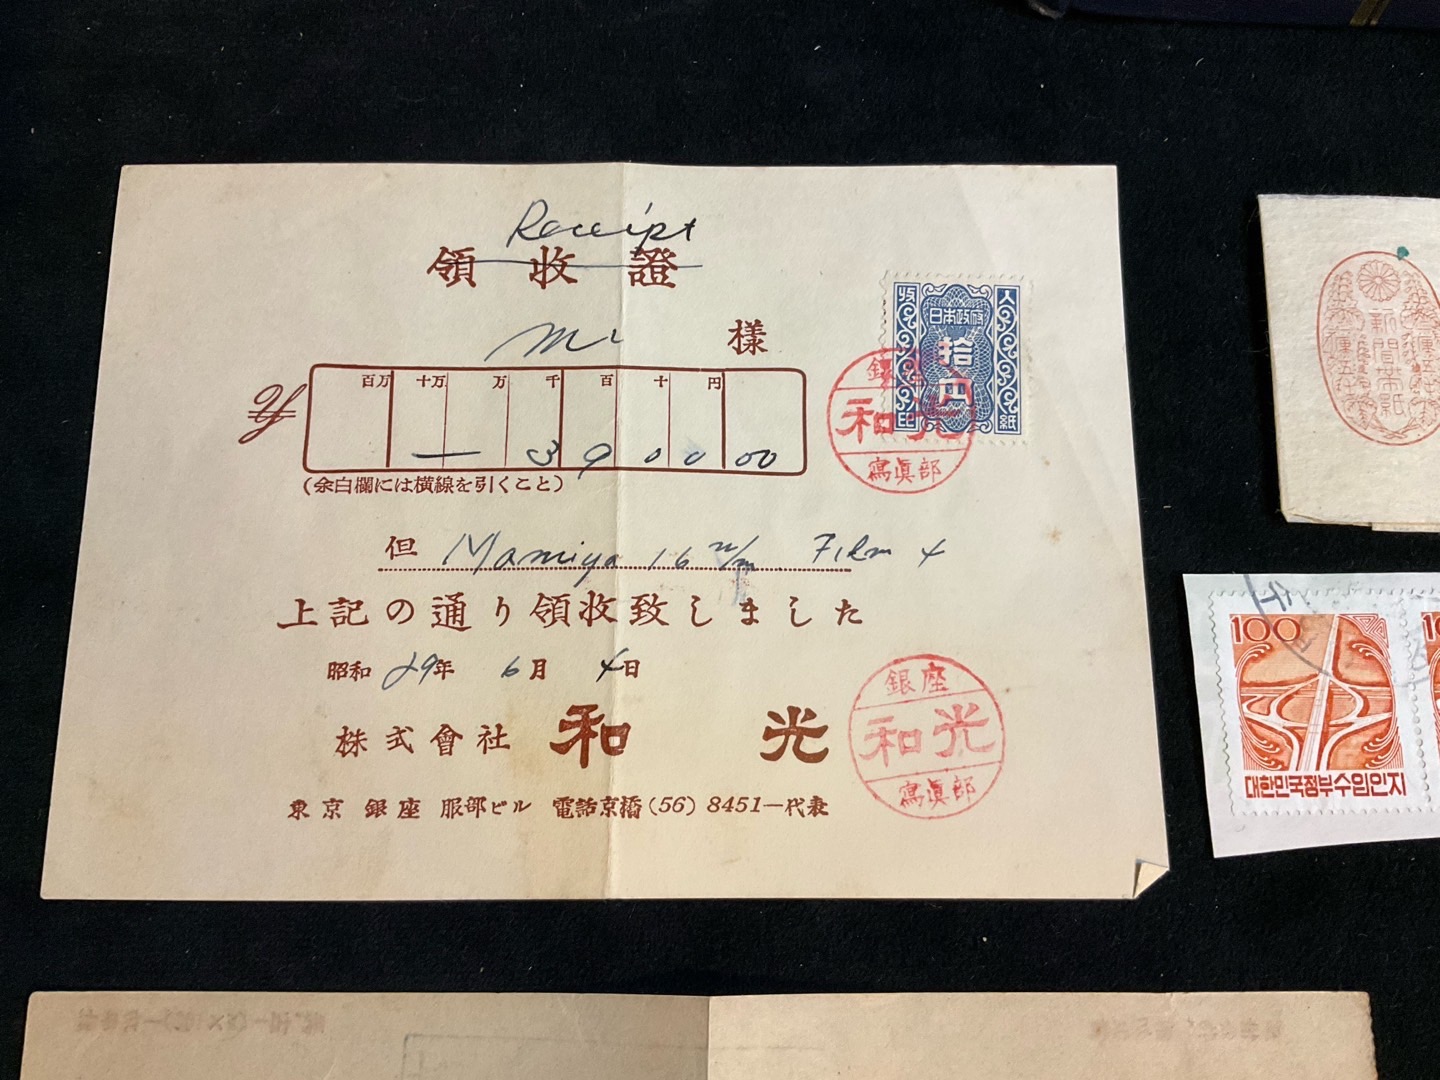 Receipt
領收證
Mr 樣
百万 十万 万 千 百 十 円
¥ — 3 9 0 0 00
(余白欄には横線を引くこと)
但 Mamiya 16 m/m Film 4
上記の通り領收致しました
昭和 29年 6月 4日
株式會社 和光
東京 銀座 服部ビル 電話京橋(56)8451—代表
收入
日本政府
拾円
印紙
銀座
和光
寫眞部
銀座
和光
寫眞部
新聞
紙
100
대한민국정부수입인지
10